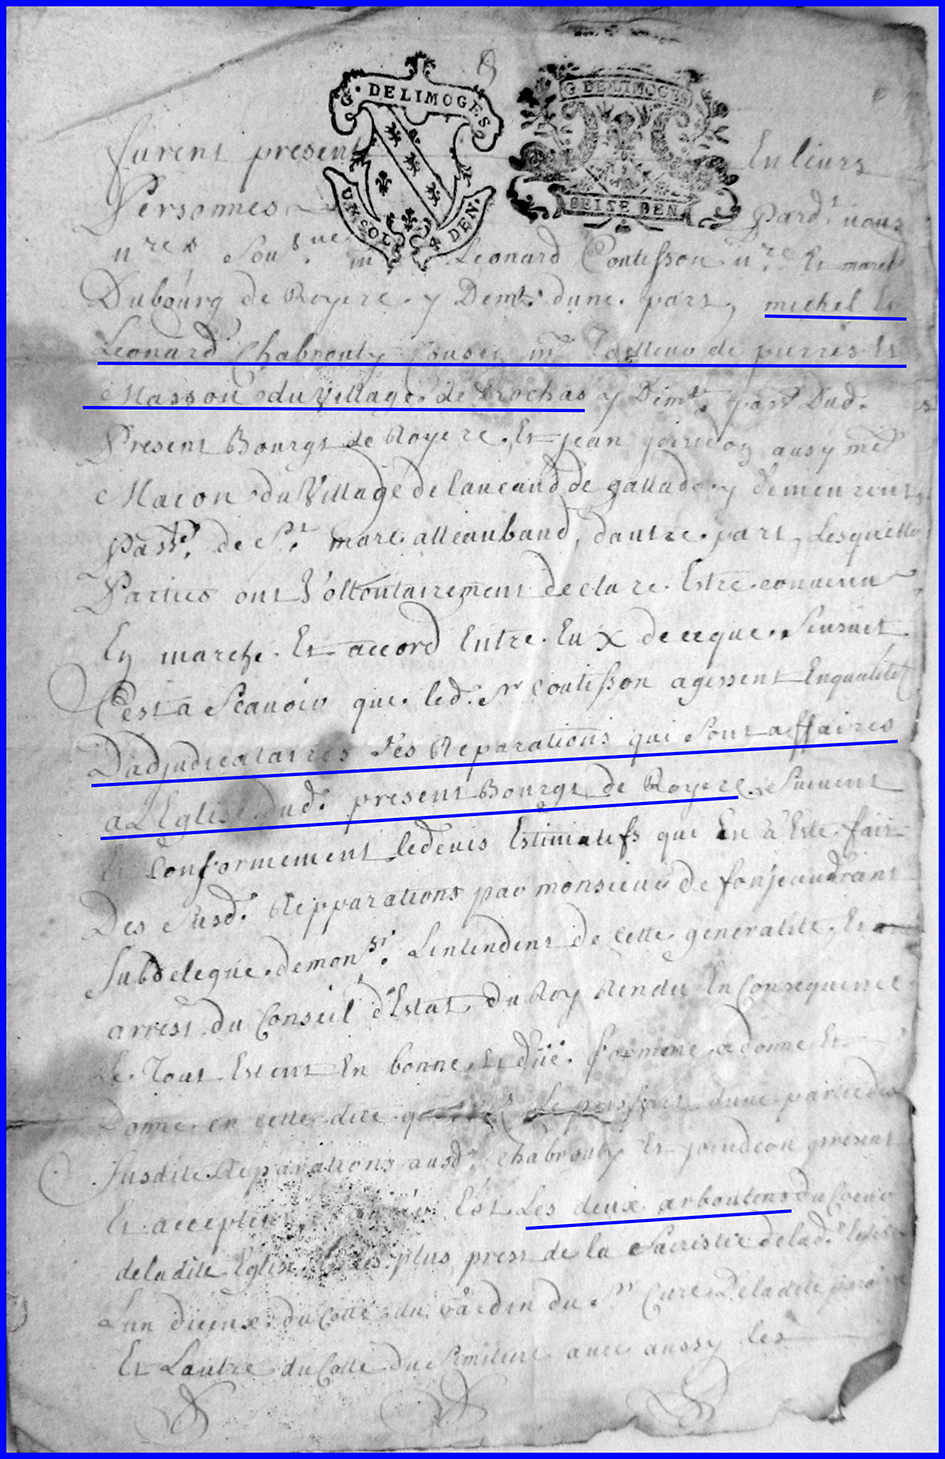 G. DE LIMOGES
UN SOL 4 DEN.
G DE LIMOGES
SEIZE DEN
furent present En leurs
Personnes pard.t nous
n.res Leonard Coutisson n.re Et
Dubourg de Royere y Dem.t dune part, michel Et
Leonard Chabrouty de pierres Et
Massou du Village de Rochas y Dem.t parr Dud.
Present Bourgt de Royere, Et jean ausy me
Macon du Village de lancaud de gallade y demeurent
parr. de St. marc alleaubaud, dautre part, Lesquelle
Parties ont Volontairement declare Estre convenu
En marche Et accord Entre Eux de ceque Sensuit
C'est a Scavoir que led. Sr Coutisson agissent Enqualité
Dadjudicataires des Reparations qui Sont affaires
a LEglise dud. present Bourgt de Royere, Suivent
Et Conformement ledevis Estimatifs qui En a Este fait
Des Susd. Repparations par monsieur de fonjeaudrant
Subdelegué demonsr. Lintendent de Cette generalité Et
arrest du Conseil d'Estat du Roy Rendu En Consequence
Le Tout Estent En bonne Et düe forme a donne Et
donne en cette dite dune partie des
Susdite Reparations ausd. chabrouty Et present
Et Est Les deux arboutens du Coeur
deladite Eglise les plus press de la Sacristie delad.
Lun dieux du Coté du Jardin du Sr Curé Deladite
Et Lautre du Cotte du Simitiere avec aussy les